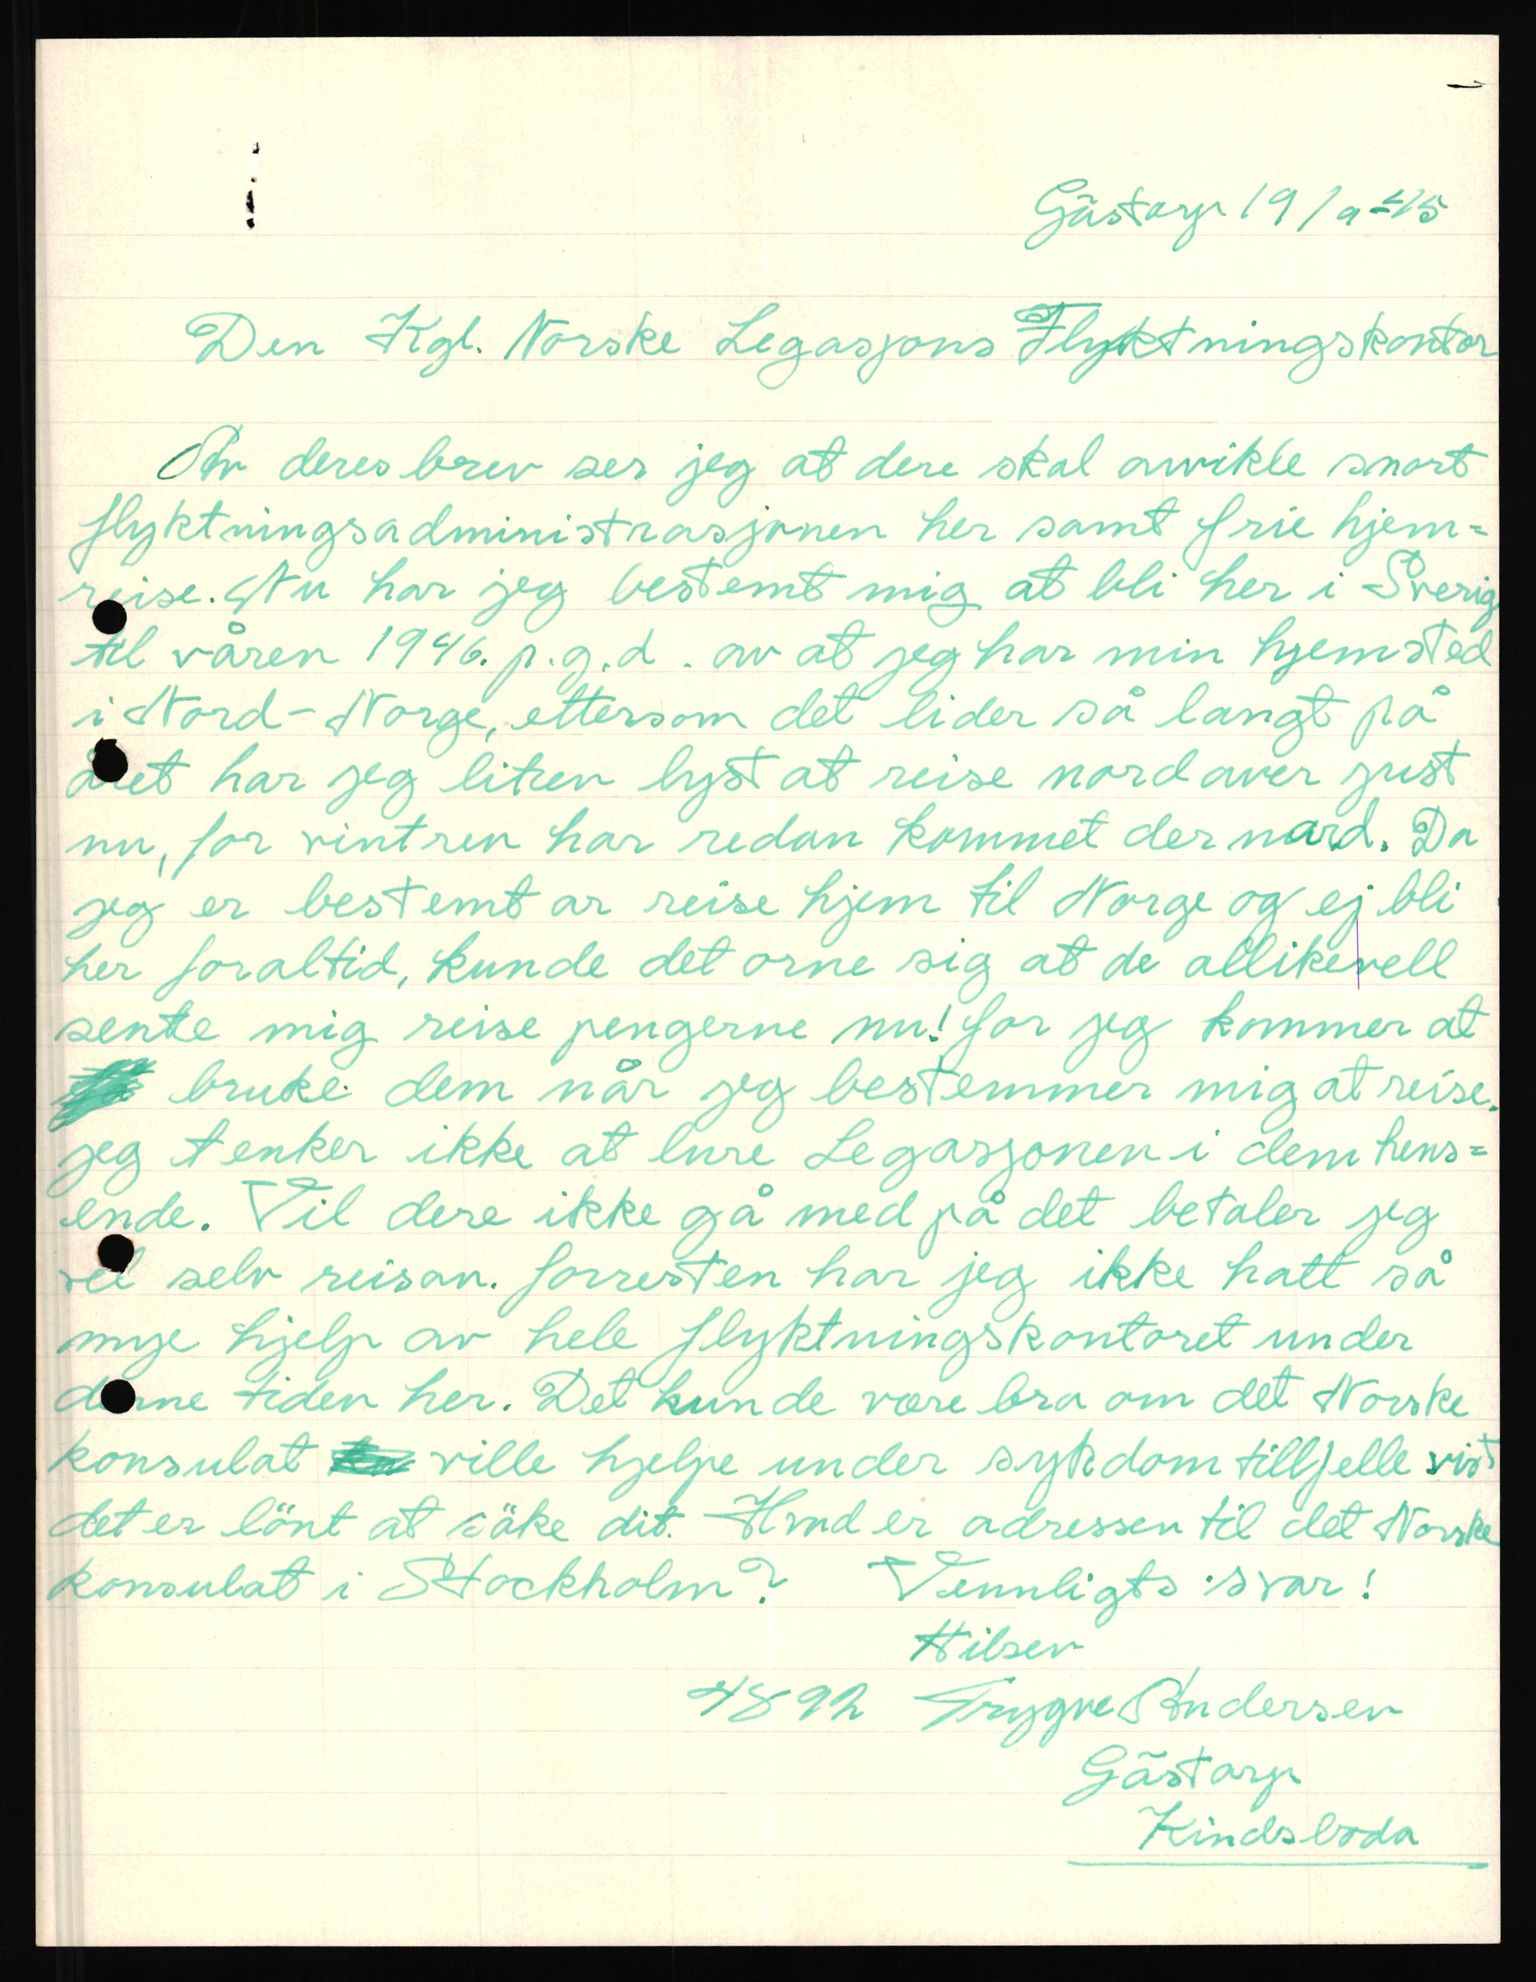 Gästarp 19/9-45
Den Kgl. Norske Legasjons Flyktningskontor
Av deres brev ser jeg at dere skal avvikle snart
flyktningsadministrasjonen her samt frie hjem=
reise. Nu har jeg bestemt mig at bli her i Sverig
til våren 1946. p.g.d. av at jeg har min hjemsted
i Nord-Norge, ettersom det lider så langt på
året har jeg liten lyst at reise nordover just
nu, for vintren har redan kommet der nord. Da
jeg er bestemt ar reise hjem til Norge og ej bli
her foraltid, kunde det orne sig at de allikevell
sente mig reise pengerne nu! for jeg kommer at
bruke dem når jeg bestemmer mig at reise.
jeg tenker ikke at lure Legasjonen i dem hens=
ende. Vil dere ikke gå med på det betaler jeg
vel selv reisan. forresten har jeg ikke hatt så
mye hjelp av hele flyktningskontoret under
denne tiden her. Det kunde være bra om det Norske
konsulat ville hjelpe under sykdom tillfelle vist
det er lönt at söke dit. Hvad er adressen til det Norske
konsulat i Stockholm? Vennligts svar!
Hilsen
4892 Trygve Andersen
Gästarp
Kindsboda